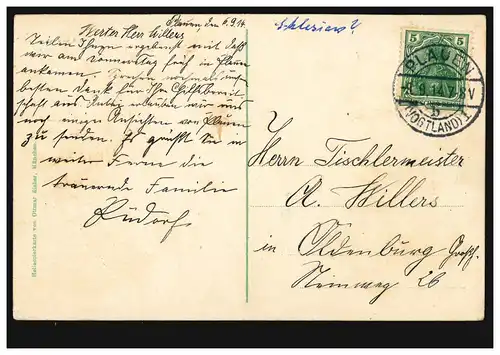 Plauen, den 6.9.14.
Werter Herr Willers
Teilen Ihnen ergebenst mit daß
wir am Donnerstag früh in Plauen
ankamen. nochmals
besten Dank für Ihre Hilfsbereit
schaft aus erlauben wir uns
noch einige Ansichten von Plauen
zu senden. Es grüßt Sie in
weiter Ferne die
trauernde Familie
Rudorf.
Heliocolorkarte von Ottmar Zieher, München
5 5
PLAUEN
9.14.7
(VOGTLAND) 1
Herrn Tischlermeister
A. Willers
in Oldenburg Großh.
Steinweg 26